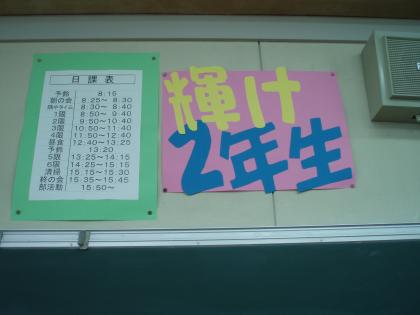 日課表
予鈴 8:15
朝の会 8:25～ 8:30
集中タイム 8:30～ 8:40
1限 8:50～ 9:40
2限 9:50～10:40
3限 10:50～11:40
4限 11:50～12:40
昼食 12:40～13:25
予鈴 13:20
5限 13:25～14:15
6限 14:25～15:15
清掃 15:15～15:30
終の会 15:35～15:45
部活動 15:50～
輝け
2年生